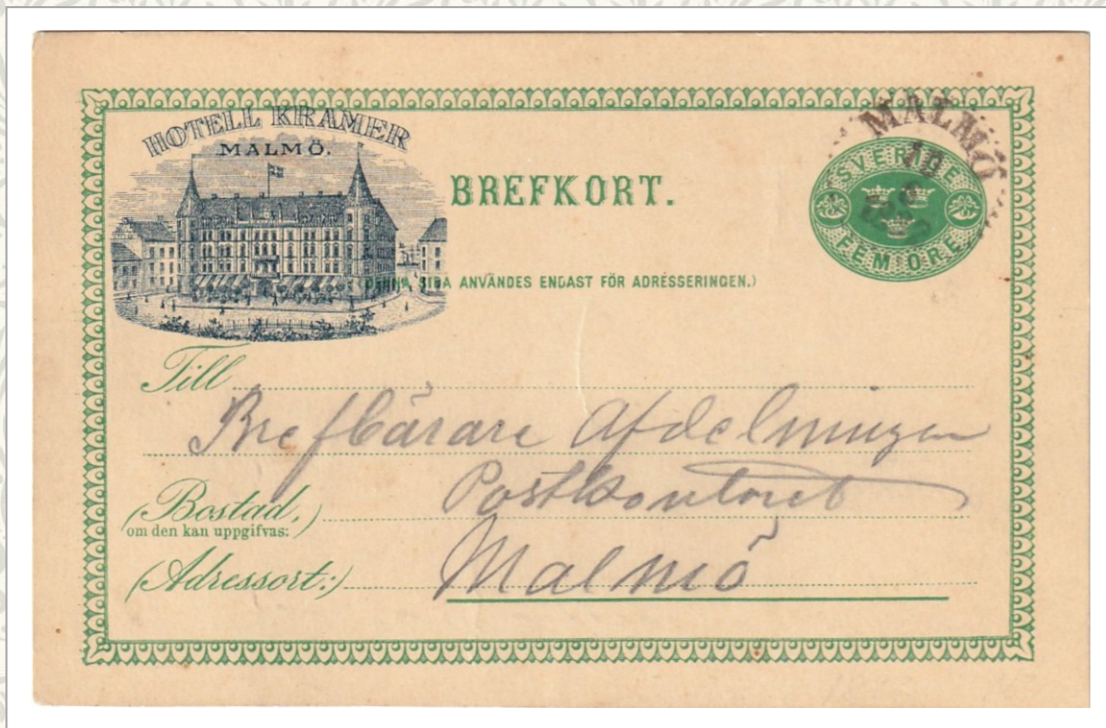 HOTELL KRAMER
MALMÖ.
BREFKORT.
MALMÖ
SVERIGE
FEM ÖRE
SIDA ANVÄNDES ENDAST FÖR ADRESSERINGEN.)
Till
Brefbärare Afdelningen
Postkontoret
(Bostad,)
om den kan uppgifvas:
(Adressort:)
Malmö